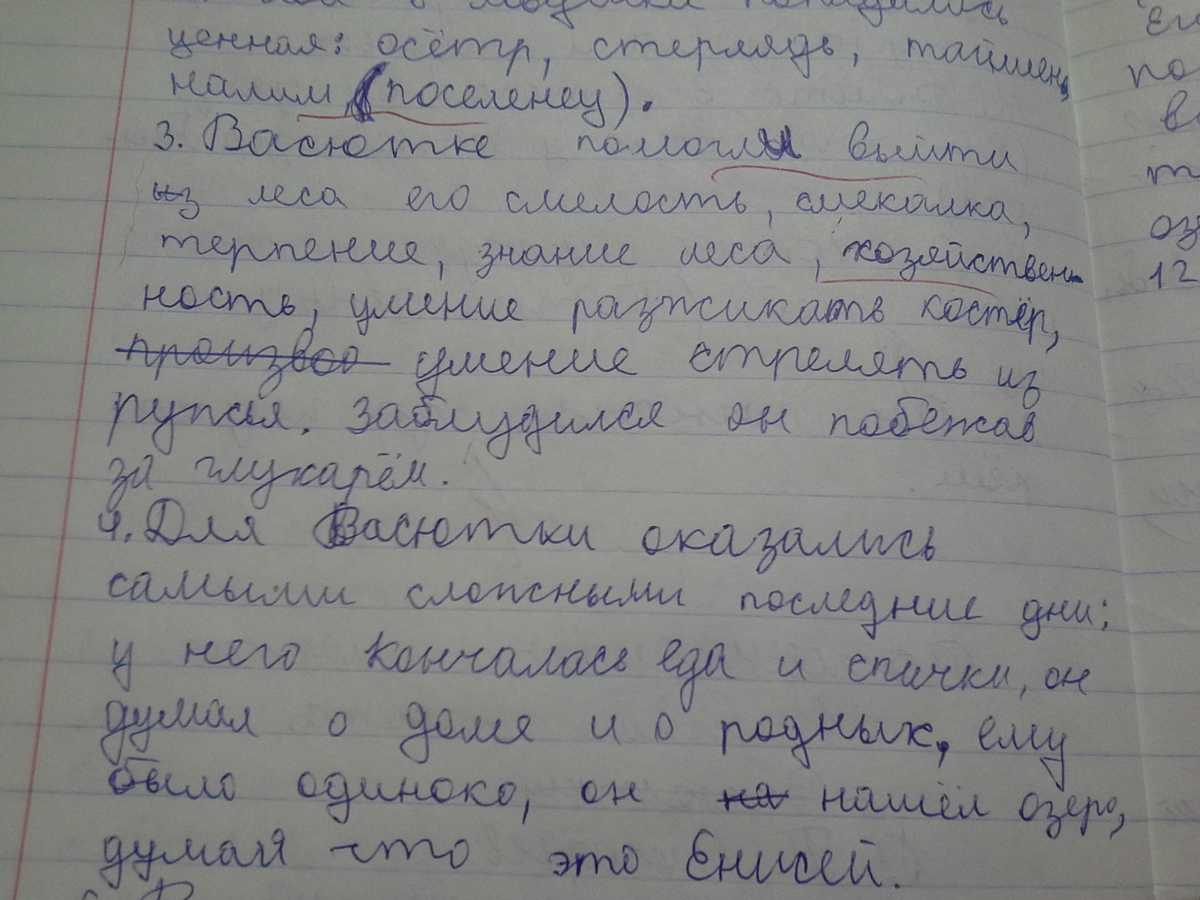 попадались
ценная: осётр, стерлядь, таймень,
налим, (поселенец).
3. Васютке помогли выйти
из леса его смелость, смекалка,
терпение, знание леса, хозяйствен-
ность, умение разжикать костёр,
произвоо умение стрелять из
ружья. Заблудился он побежав
за глухарём.
4. Для Васютки оказались
самыми сложными последние дни:
у него кончалась еда и спички, он
думал о доме и о родных, ему
было одиноко, он на нашёл озеро,
думая что это Енисей.
по
оз
12